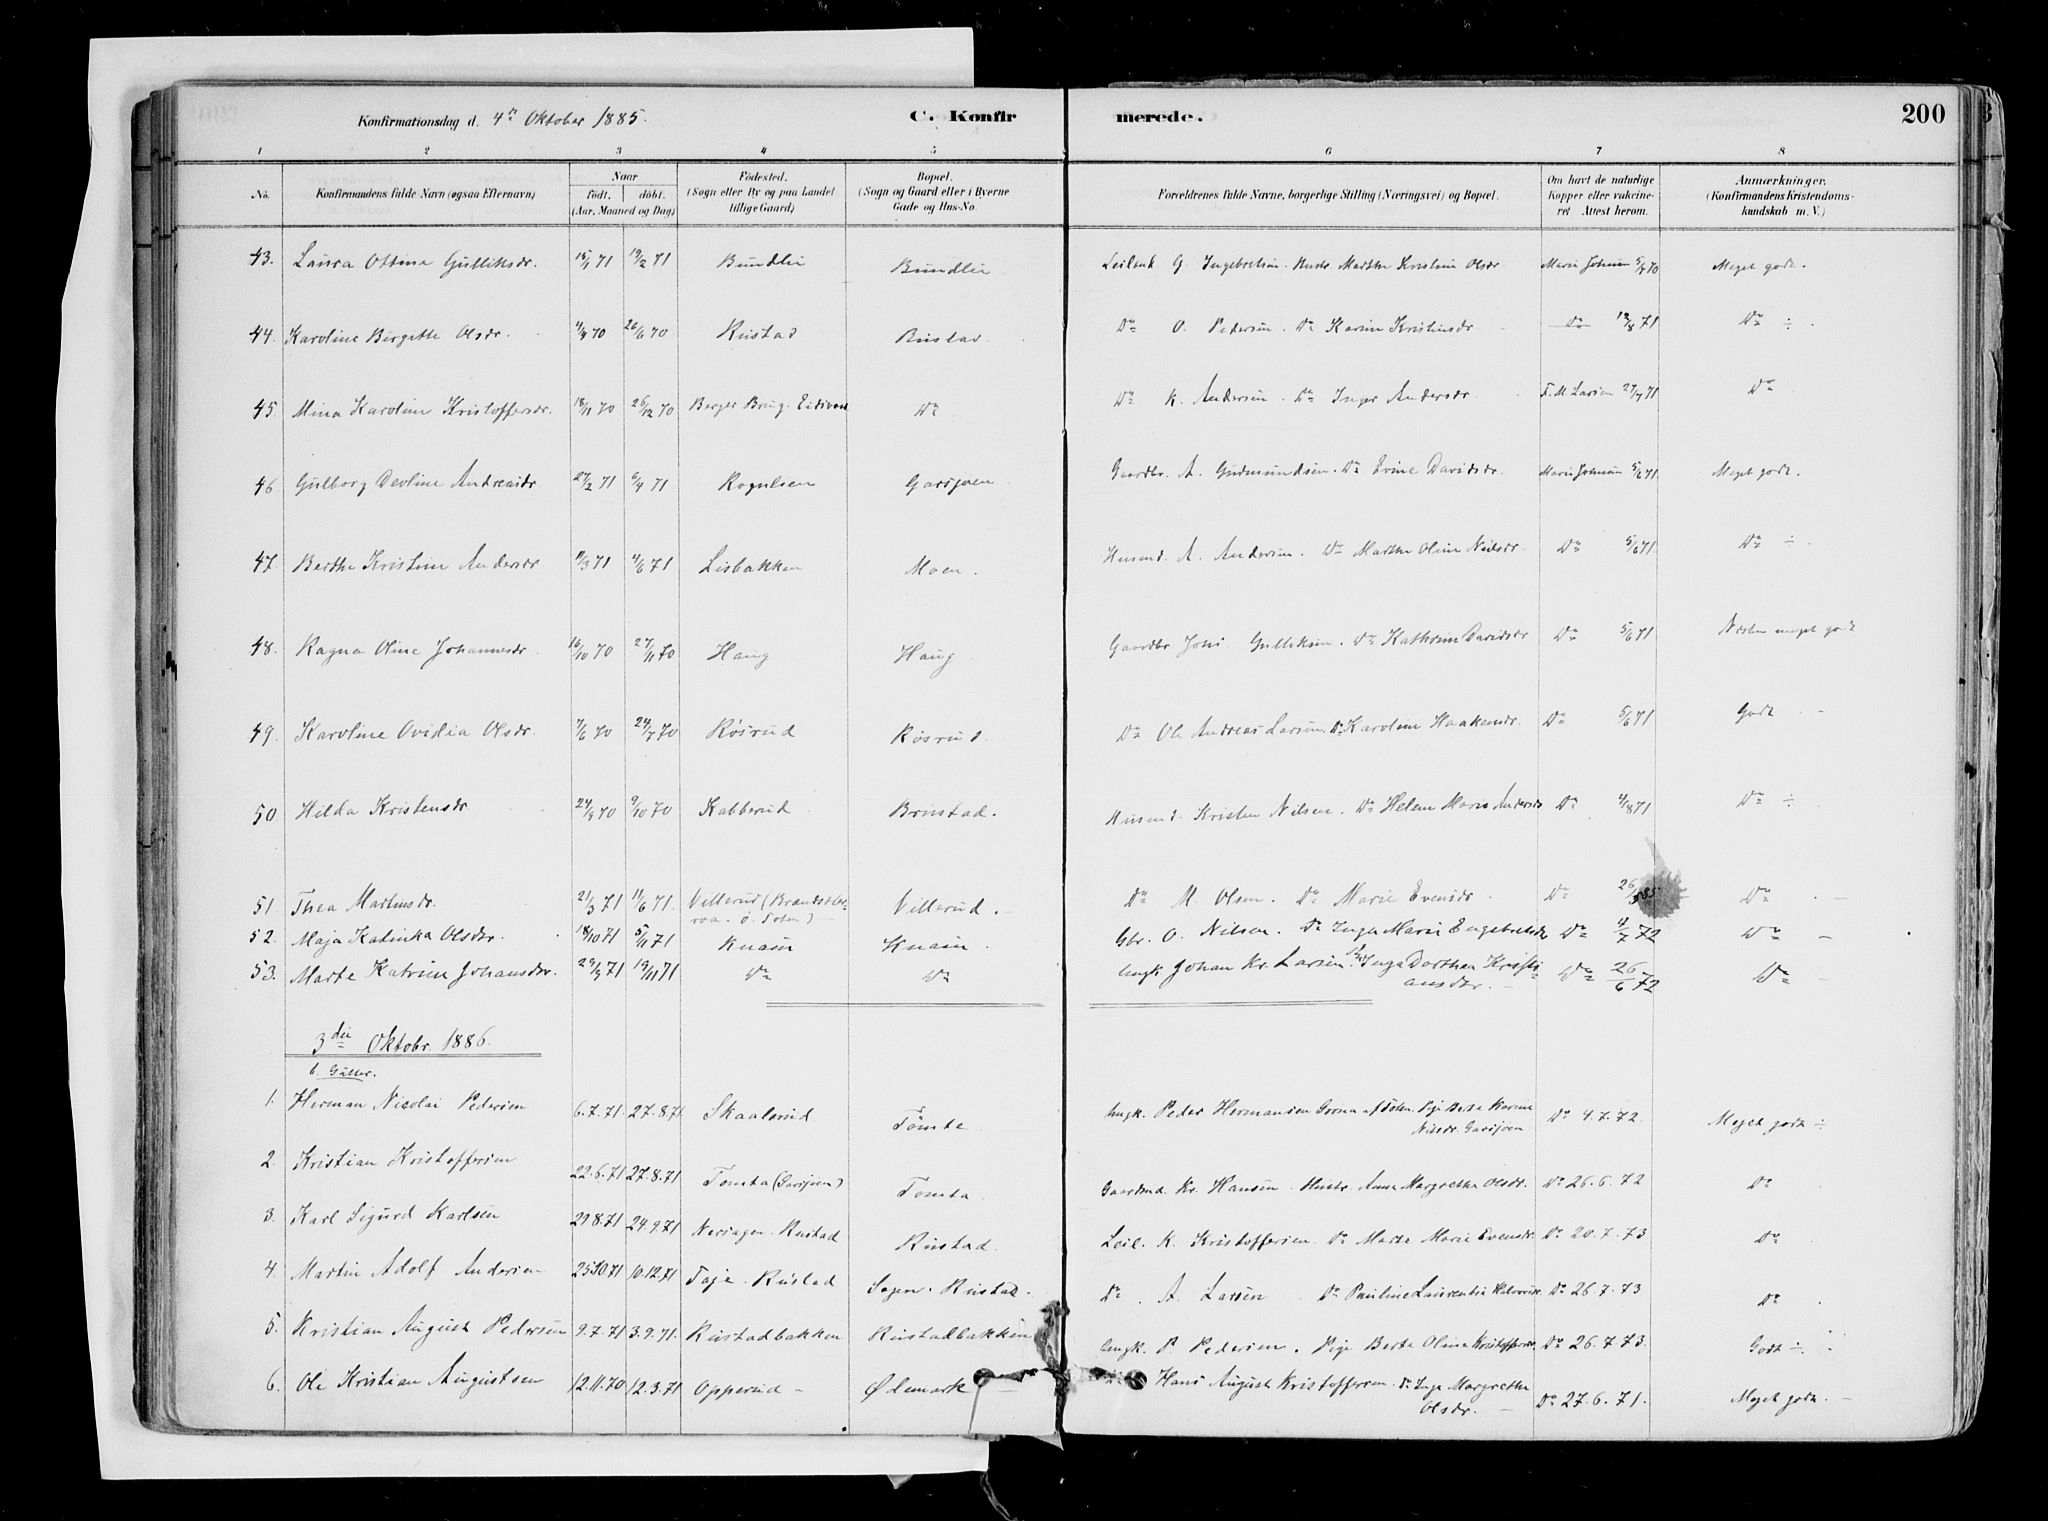 Konfirmationsdag d. 4de Oktober 1885. C. Konfirmerede. 200
1 2 3 4 5 6 7 8
No. Konfirmandens fulde Navn (ogsaa Efternavn) Naar født. døbt. (Aar, Maaned og Dag) Fødested. (Sogn eller By og paa Landet tillige Gaard) Bopæl. (Sogn og Gaard eller i Byerne Gade og Hus-No. Forældrenes fulde Navne, borgerlige Stilling (Næringsvei) og Bopæl. Om havt de naturlige Kopper eller vakcineret Attest herom. Anmærkninger. (Konfirmandens Kristendomskundskab m. V.)
43. Laura Ottine Gulliksdr. 15/1 71 19/2 71 Bundlie Bundlie Leilend G. Ingebretsen. Hustr. Marthe Kristine Olsdr. Marie Johnsen 5/7 70 Meget godt.
44. Karoline Birgitte Olsdr. 4/4 70 26/6 70 Rustad Rustad Do O. Pedersen. Do Karine Kristinsdr. Do 12/8 71 Do ÷
45. Mina Karoline Kristoffersdr. 18/11 70 26/12 70 Berger Brug. Eidsvold Do Do K. Andersen. Do Inger Andersdr. F. M. Larsen 27/7 71 Do
46. Gulborg Devline Andreasdr. 27/2 71 6/4 71 Rognlien Garsjøen Gaardbr. A. Gudmundsen. Do Evine Davidsdr. Marie Johnsen 5/6 71. Meget godt.
47. Berthe Kristine Andersdr. 11/3 71 4/6 71 Lisbakken Moen. Husmd. A. Andersen. Do Marthe Oline Nielsdr. Do 5/6 71. Do ÷
48. Ragna Oline Johannesdr. 16/10 70 27/11 70 Haug Haug Gaardbr Johs. Gulliksen. Do Kathrine Davidsdr Do 5/6 71. Næsten meget godt
49. Karoline Ovidia Olsdr. 7/6 70 24/7 70 Røisrud Røsrud. Do Ole Andreas Larsen. Do Karoline Haakensdr. Do 5/6 71. Godt
50 Hilda Kristensdr 24/4 70 9/10 70 Kabberud Brustad. Husmd. Kristen Nilsen. Do Helene Marie Andersdr Do 4/8 71 Do ÷
51. Thea Martinsdr. 21/3 71 11/6 71. Villerud (Ø. Toten) Villerud. Do M. Olsen. Do Marie Evensdr. Do 26/ 85. Do
52. Maja Katinka Olsdr. 18/10 71 5/11 71 Knain Knain. Gbr. O. Nilsen. Do Inga Marie Engebretsdr Do 4/7 72 Do
53. Marte Katrine Johansdr. 29/9 71 19/11 71 Do Do Ungk Johan Kr. Larsen. Pige Inga Dorthea Kristiansdr. Do 26/6 72 Do
3die Oktobr. 1886.
6. Gutter.
1. Herman Nicolai Pedersen 6.7.71. 27.8.71 Skaalerud Tømte Ungk. Peder Hermansen Pige Berte Karine Nilsdr. Garsjøen Do 4.7.72. Meget godt ÷
2. Kristian Kristoffersen 22.6.71 27.8.71 Tomta (Garsjøen) Tomta. Gaardmd. Kr. Hansen. Hustr. Anne Margrethe Olsdr. Do 26.6.72 Do
3. Karl Sigurd Karlsen 29.8.71 24.9.71 Nersagen. Rustad Rustad. Leil. K. Kristoffersen. Do Marte Marie Evensdr. Do 20.7.73 Do
4. Martin Adolf Andersen 25.10.71 10.12.71 Taje. Rustad Sagen. Rustad. Do. A. Larsen Do Pauline Laurentia Halvorsdr. Do 26.7.73 Do
5. Kristian August Pedersen 9.7.71 3.9.71. Rustadbakken Rustadbakken Ungk. P. Pedersen. Pige Berte Oline Kristoffersdr. Do 26.7.73. Godt ÷
6. Ole Kristian Augustsen 12.11.70 12.3.71 Opperud Ølemark Hans August Kristoffersen. Do Inge Margrethe Olsdr. Do 27.6.71. Meget godt.